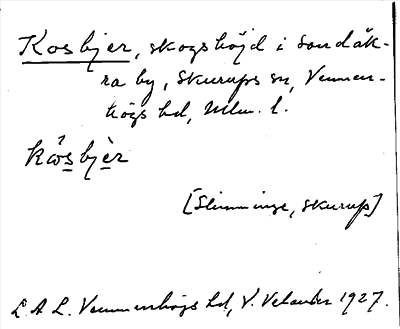 Kosbjer, skogshöjd i Sandåk-
ra by, Skurups sn, Vemmen-
högs hd, Mlm. l.
kòsbjèr
[Slimminge, Skurup]
L. A. L. Vemmenhögs hd, V. Velander 1927.